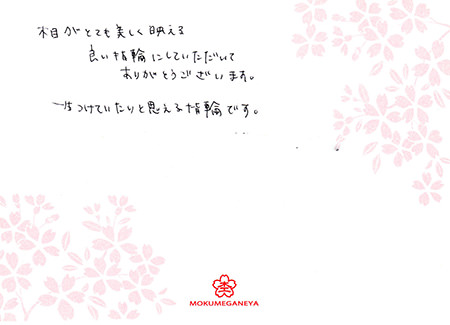 木目がとても美しく映える
良い指輪にしていただいて
ありがとうございます。
つけていたいと思える指輪です。
MOKUMEGANEYA